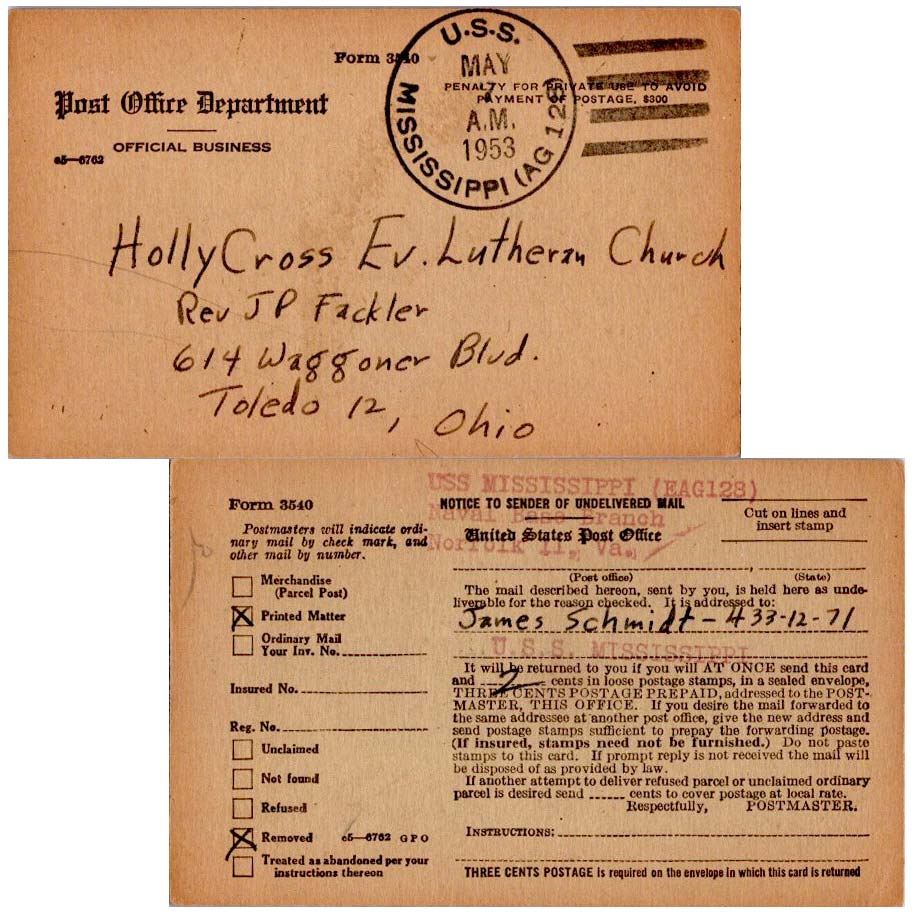 Form 3540
Post Office Department
OFFICIAL BUSINESS
c5—6762
PENALTY FOR PRIVATE USE TO AVOID
PAYMENT OF POSTAGE, $300
U.S.S.
MISSISSIPPI (AG 128)
MAY
A.M.
1953
HollyCross Ev. Lutheran Church
Rev J P Fackler
614 Waggoner Blvd.
Toledo 12, Ohio
USS MISSISSIPPI (EAG128)
Naval Base Branch
Norfolk 11, Va.
Form 3540
Postmasters will indicate ordi-
nary mail by check mark, and
other mail by number.
Merchandise
(Parcel Post)
X Printed Matter
Ordinary Mail
Your Inv. No.
Insured No.
Reg. No.
Unclaimed
Not found
Refused
X Removed c5—6762 GPO
Treated as abandoned per your
instructions thereon
NOTICE TO SENDER OF UNDELIVERED MAIL
United States Post Office
Cut on lines and
insert stamp
(Post office) , (State)
The mail described hereon, sent by you, is held here as unde-
liverable for the reason checked. It is addressed to:
James Schmidt - 433-12-71
U.S.S. MISSISSIPPI
It will be returned to you if you will AT ONCE send this card
and 2 cents in loose postage stamps, in a sealed envelope,
THREE CENTS POSTAGE PREPAID, addressed to the POST-
MASTER, THIS OFFICE. If you desire the mail forwarded to
the same addressee at another post office, give the new address and
send postage stamps sufficient to prepay the forwarding postage.
(If insured, stamps need not be furnished.) Do not paste
stamps to this card. If prompt reply is not received the mail will
be disposed of as provided by law.
If another attempt to deliver refused parcel or unclaimed ordinary
parcel is desired send ______ cents to cover postage at local rate.
Respectfully, POSTMASTER.
INSTRUCTIONS:
THREE CENTS POSTAGE is required on the envelope in which this card is returned